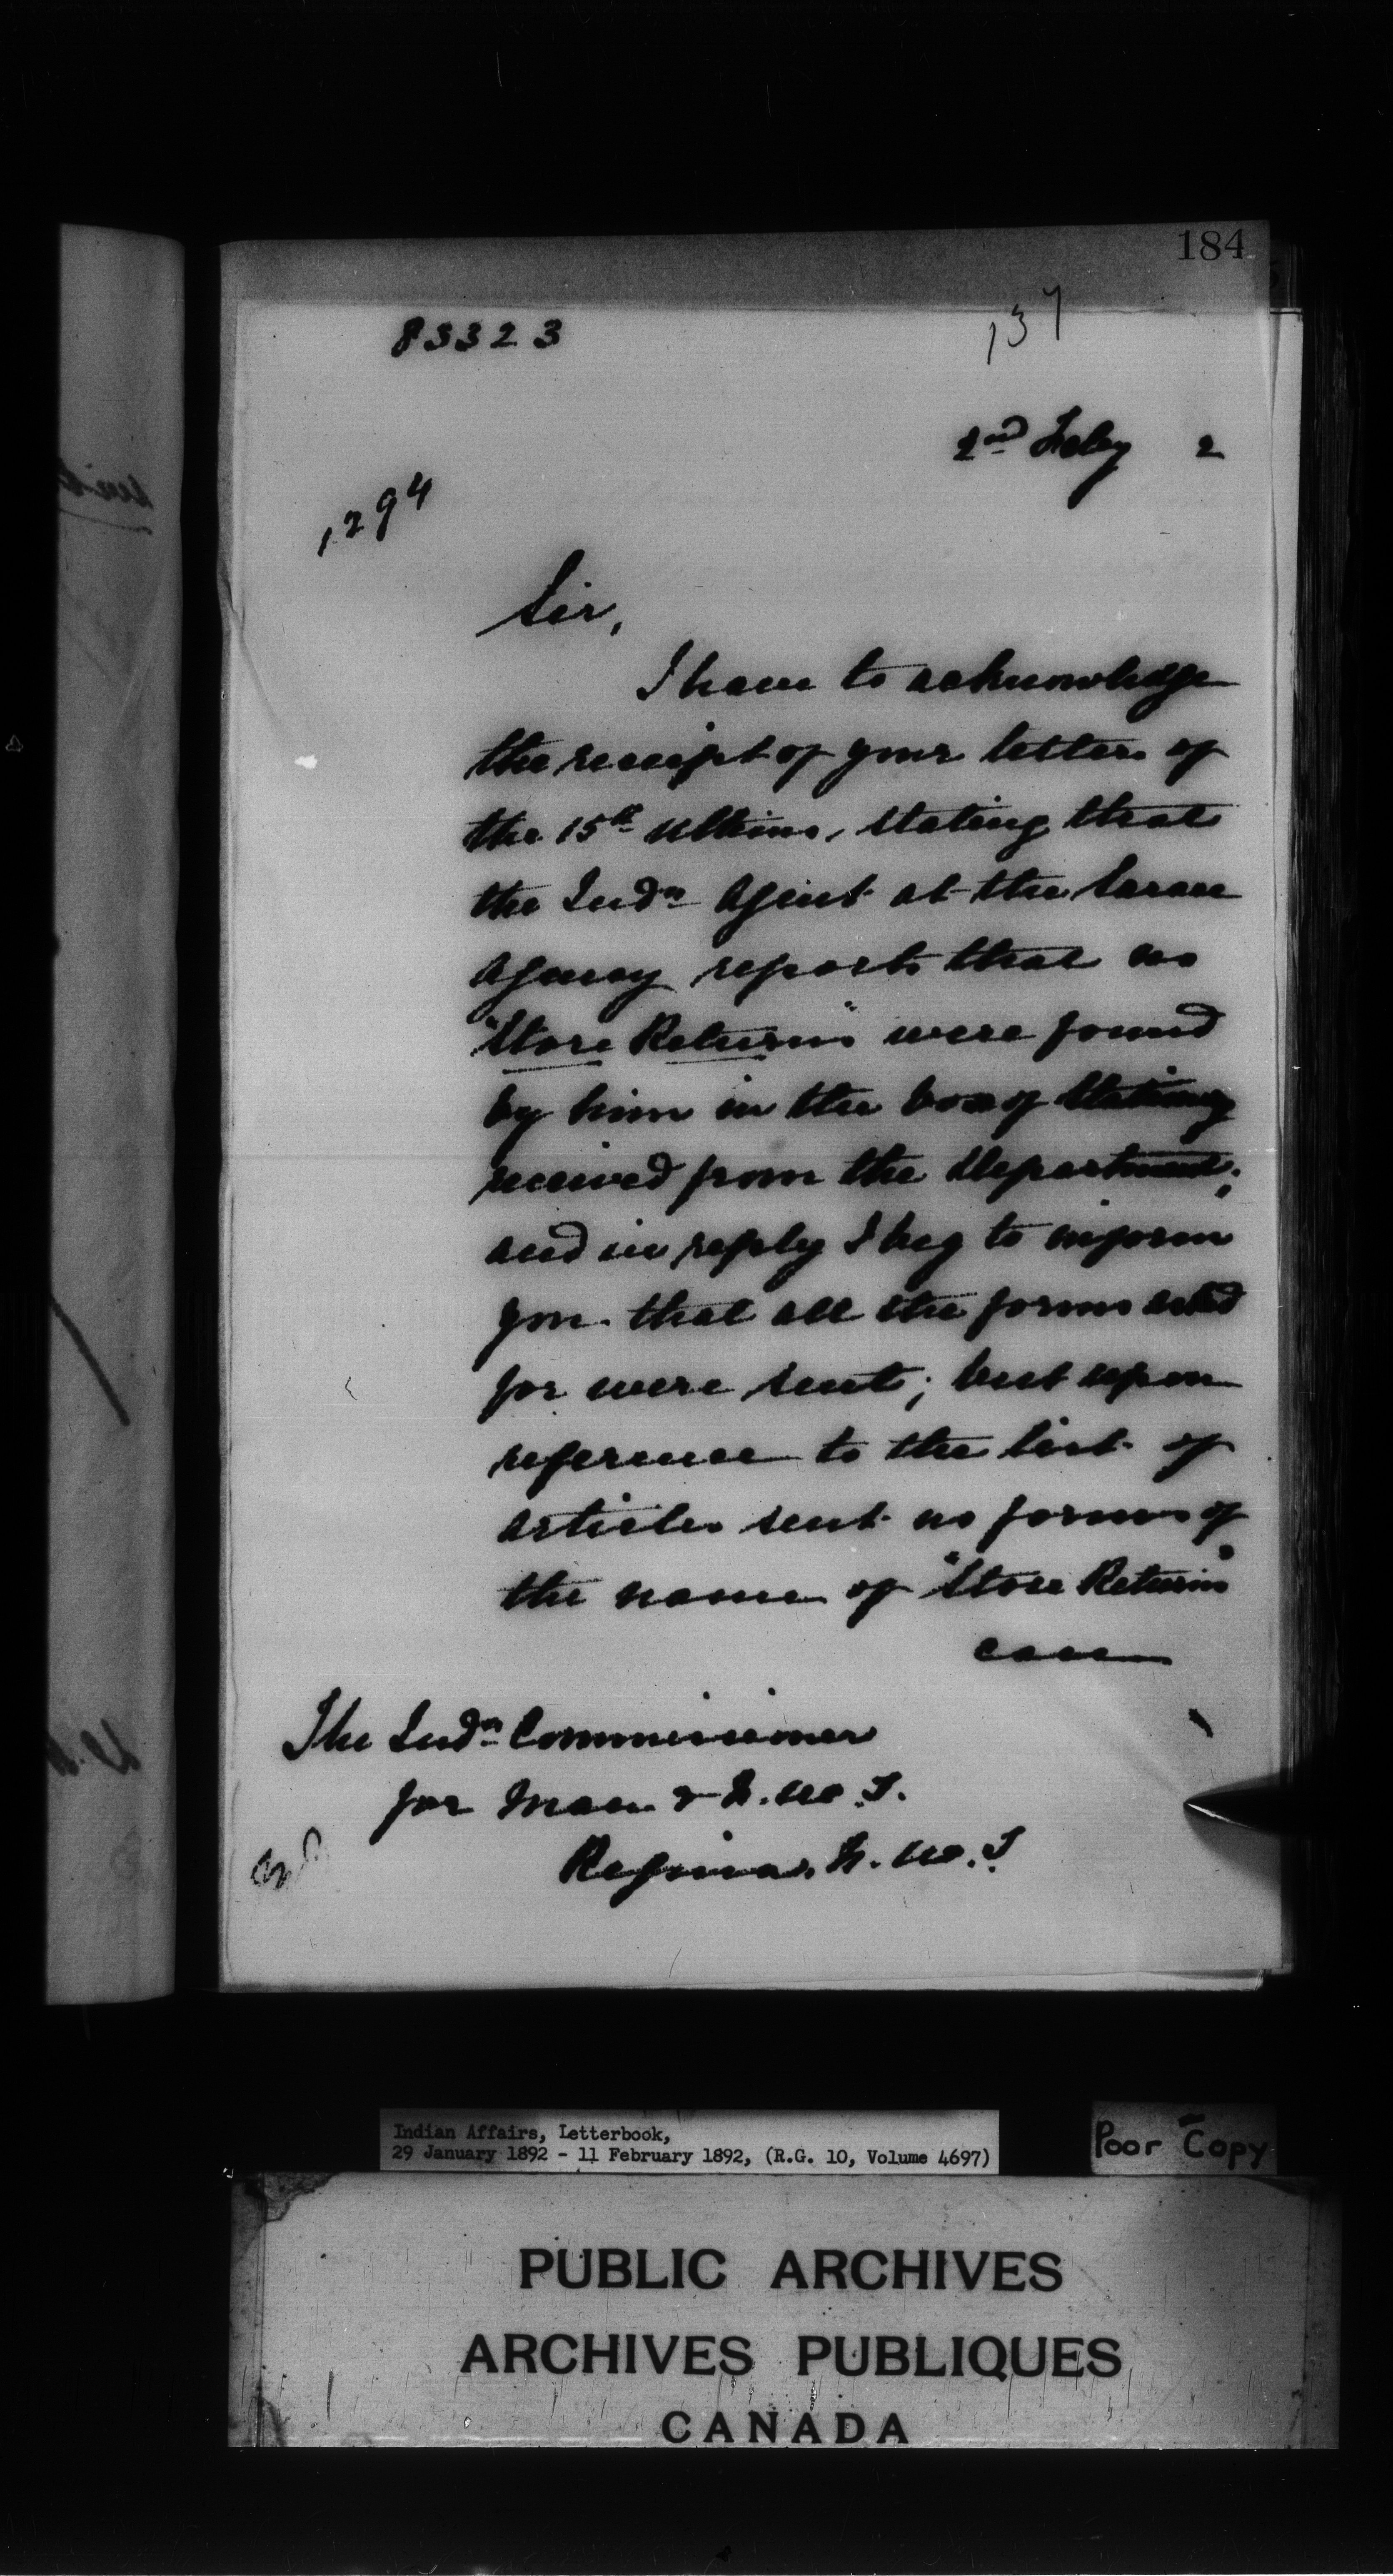 184
83323
137
2nd Feby 2
1294
Sir,
I have to acknowledge
the receipt of your letter of
the 15th Ultimo, stating that
the Indn Agent at the Sarcee
Agency reports that no
"Store Returns" were found
by him in the box of Stationery
received from the Department;
and in reply I beg to inform
you that all the forms asked
for were sent; but upon
reference to the list of
articles sent no forms of
the name of "Store Returns"
The Indn Commissioner
for Man & N.W.T.
Regina, N.W.T
Indian Affairs, Letterbook,
29 January 1892 - 11 February 1892, (R.G. 10, Volume 4697)
Poor Copy
PUBLIC ARCHIVES
ARCHIVES PUBLIQUES
CANADA